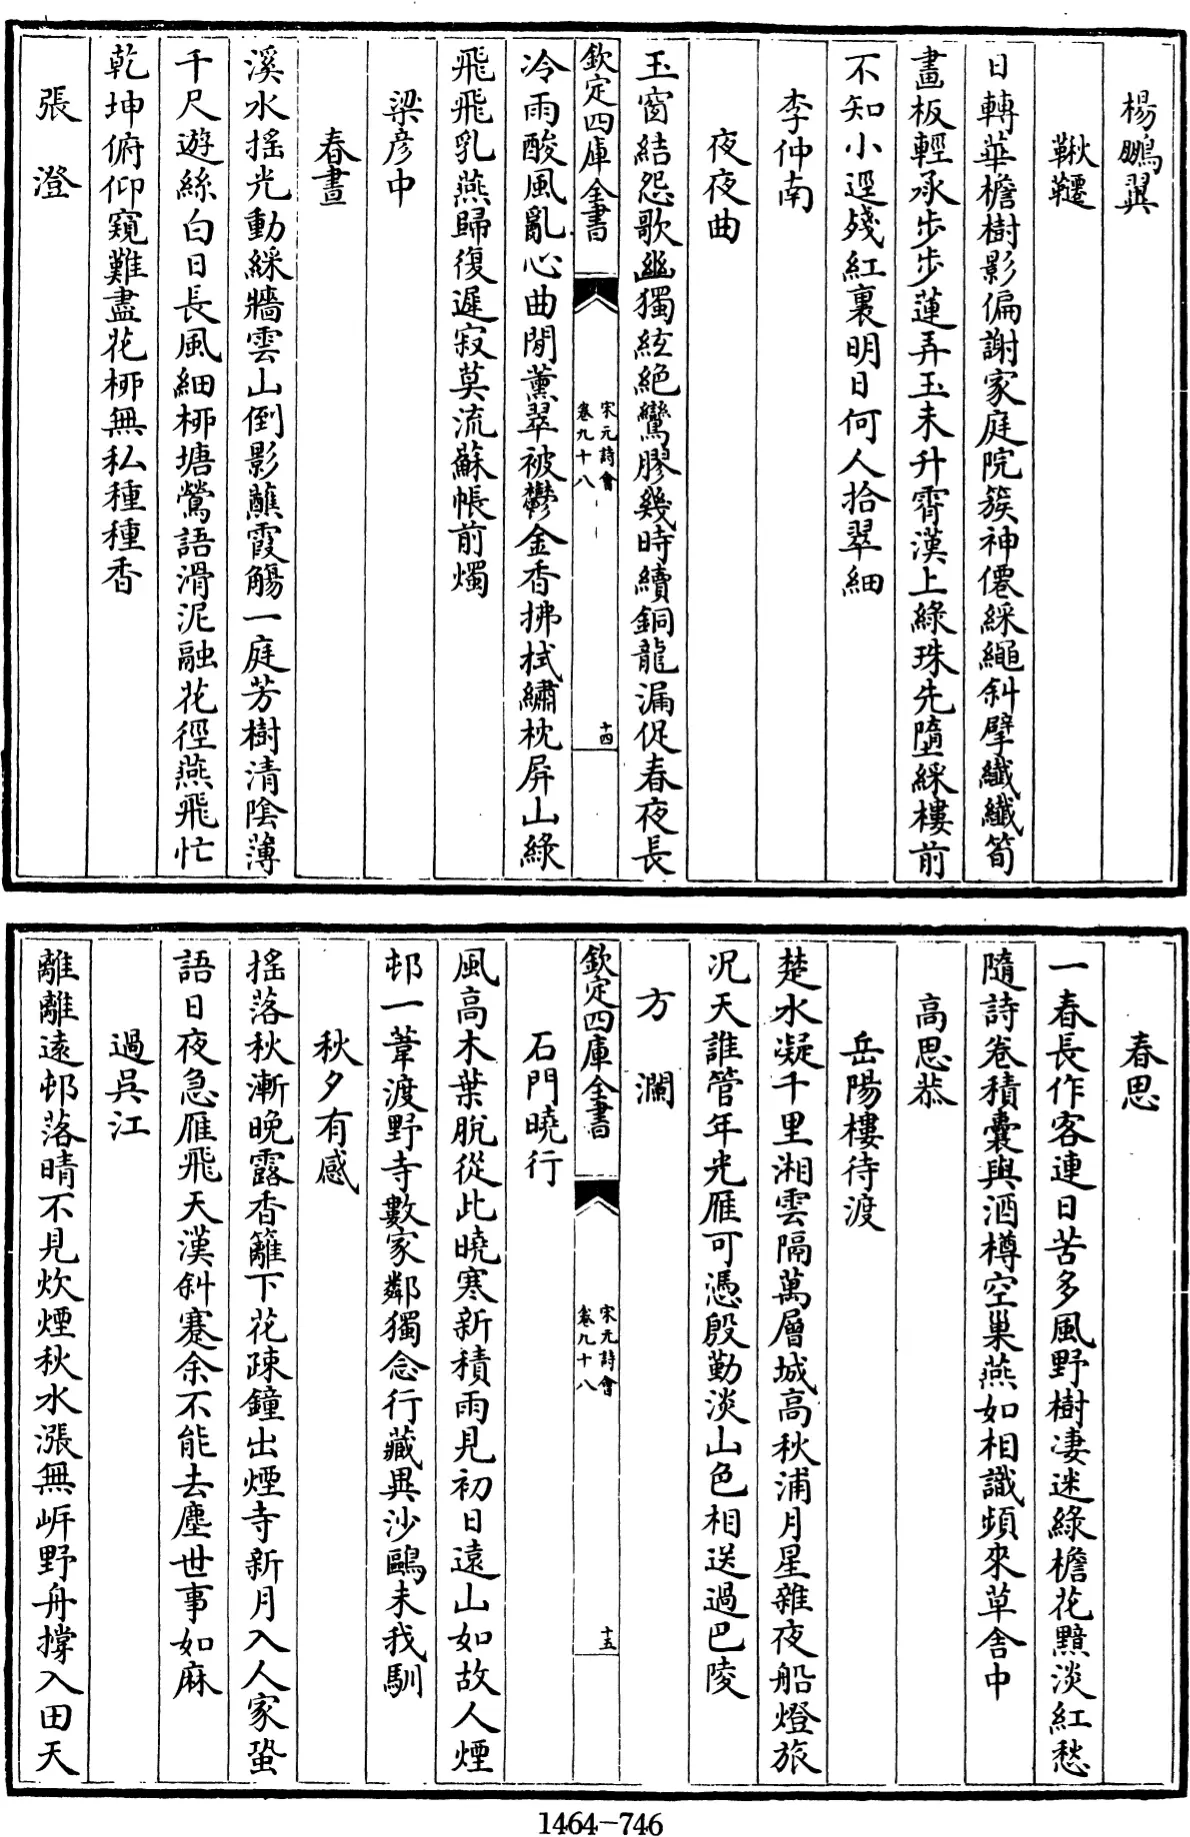 楊鵬翼
鞦韆
日轉華檐樹影偏謝家庭院簇神僊綵繩斜擘纖纖筍
畫板輕承步步蓮弄玉未升霄漢上綠珠先墮綵樓前
不知小逕殘紅裏明日何人拾翠細
李仲南
夜夜曲
玉窗結怨歌幽獨絃絶鸞膠幾時續銅龍漏促春夜長
欽定四庫全書
宋元詩會
卷九十八
十四
冷雨酸風亂心曲閒薰翠被鬱金香拂拭繡枕屏山綠
飛飛乳燕歸復遲寂莫流蘇帳前燭
梁彦中
春晝
溪水搖光動綵牆雲山倒影蘸霞觴一庭芳樹清陰薄
千尺遊絲白日長風細桺塘鶯語滑泥融花徑燕飛忙
乾坤俯仰窺難盡花桺無私種種香
張澄
春思
一春長作客連日苦多風野樹凄迷綠檐花黯淡紅愁
隨詩卷積囊與酒樽空巢燕如相識頻來草舍中
高思恭
岳陽樓待渡
楚水凝千里湘雲隔萬層城高秋浦月星雜夜船燈旅
况天誰管年光雁可憑殷勤淡山色相送過巴陵
方瀾
欽定四庫全書
宋元詩會
卷九十八
十五
石門曉行
風高木葉脱從此曉寒新積雨見初日遠山如故人煙
邨一葦渡野寺數家鄰獨念行藏異沙鷗未我馴
秋夕有感
搖落秋漸晚露香籬下花疎鐘出煙寺新月入人家蛩
語日夜急雁飛天漢斜蹇余不能去塵世事如麻
過吳江
離離遠邨落晴不見炊煙秋水漲無岍野舟撐入田天
1464-746